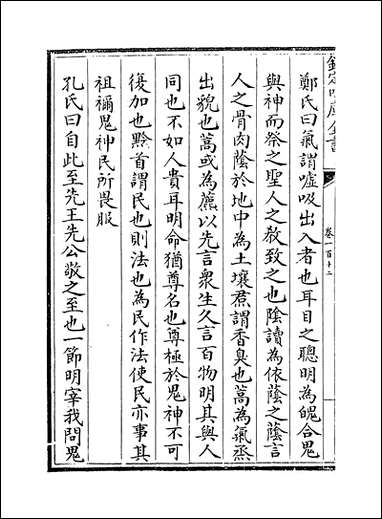 欽定四庫全書
卷一百十二
鄭氏曰氣謂嘘吸出入者也耳目之聰明為魄合鬼
與神而祭之聖人之教致之也陰讀為依蔭之蔭言
人之骨肉蔭於地中為土壤焄謂香臭也蒿為氣烝
出貌也蒿或為藨以先言衆生久言百物明其與人
同也不如人貴耳明命猶尊名也尊極於鬼神不可
復加也黔首謂民也則法也為民作法使民亦事其
祖禰鬼神民所畏服
孔氏曰自此至先王先公敬之至也一節明宰我問鬼